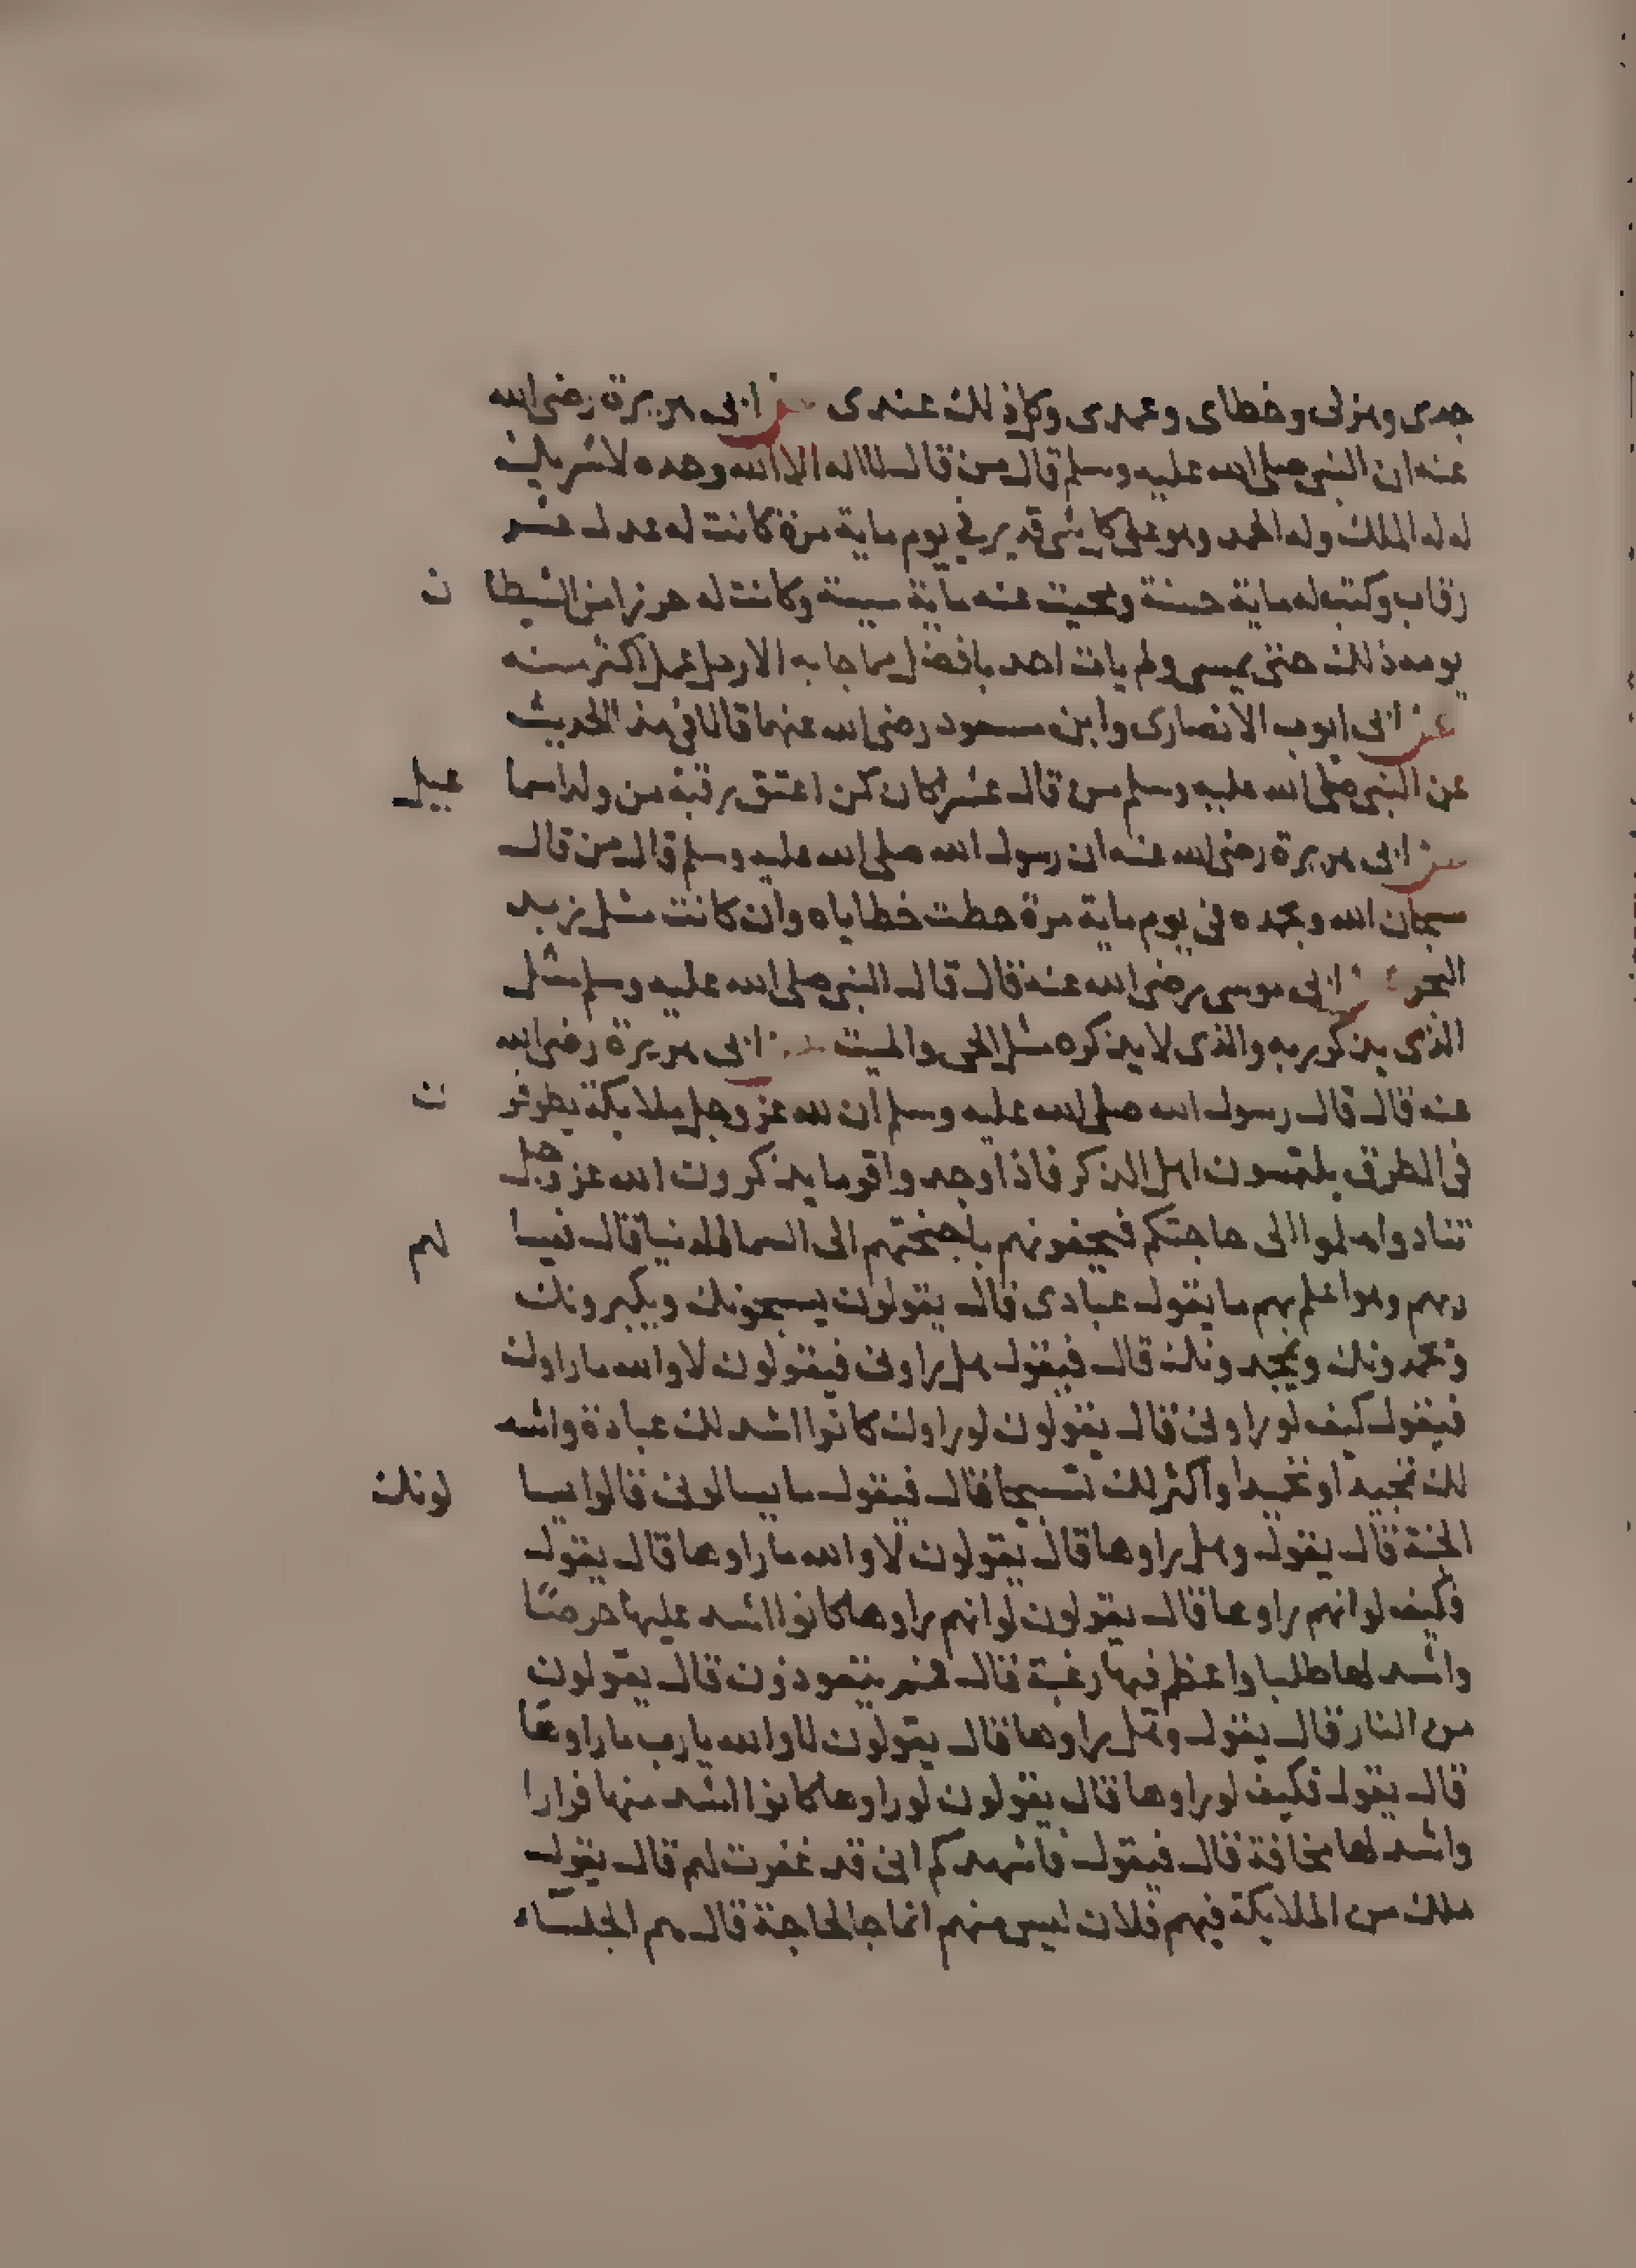 جدى وهزلى وخطاى وعمدى وكل ذلك عندى عن ابى هريرة رضى الله
عنه ان النبى صلى الله عليه وسلم قال من قال لا اله الا الله وحده لا شريك
له له الملك وله الحمد وهو على كل شى قدير فى يوم ماية مرة كانت له عدل عشر
رقاب وكتبه له ماية حسنة ومحيت عنه ماية سيية وكانت له حرزا من الشيطان
يومه ذلك حتى يمسى ولم يات احد بافضل مما جا به الا رجل عمل اكثر منه
عن ابى ايوب الانصارى وابن مسعود رضى الله عنهما قالا فى هذا الحديث
عن النبى صلى الله عليه وسلم من قال عشرا كان كمن اعتق رقبة من ولد اسماعيل
عن ابى هريرة رضى الله عنه ان رسول الله صلى الله عليه وسلم قال من قال
سبحان الله وبحمده فى يوم ماية مرة حطت خطاياه وان كانت مثل زبد
البحر عن ابى موسى رضى الله عنه قال قال النبى صلى الله عليه وسلم مثل
الذى يذكر ربه والذى لا يذكره مثل الحى والميت عن ابى هريرة رضى الله
عنه قال قال رسول الله صلى الله عليه وسلم ان لله عز وجل ملايكة يطوفون
فى الطرق يلتمسون اهل الذكر فاذا وجدوا قوما يذكرون الله عز وجل
تنادوا هلموا الى حاجتكم فيحفونهم باجنحتهم الى السما الدنيا قال فيسالهم
ربهم وهو اعلم بهم ما يقول عبادى قال يقولون يسبحونك ويكبرونك
ويحمدونك ويمجدونك قال فيقول هل راونى فيقولون لا والله ما راوك
فيقول كيف لو راونى قال يقولون لو راوك كانوا اشد لك عبادة واشد
لك تمجيدا وتحميدا واكثر لك تسبيحا قال فيقول ما يسالونى قالوا يسالونك
الجنة قال يقول وهل راوها قال يقولون لا والله ما راوها قال يقول
فكيف لو انهم راوها قال يقولون لو انهم راوها كانوا اشد عليها حرصا
واشد لها طلبا واعظم فيها رغبة قال فمم يتعوذون قال يقولون
من النار قال يقول وهل راوها قال يقولون لا والله يا رب ما راوها
قال يقول فكيف لو راوها قال يقولون لو راوها كانوا اشد منها فرارا
واشد لها مخافة قال فيقول فاشهدكم انى قد غفرت لهم قال يقول
ملك من الملايكة فيهم فلان ليس منهم انما جا لحاجة قال هم الجلساء